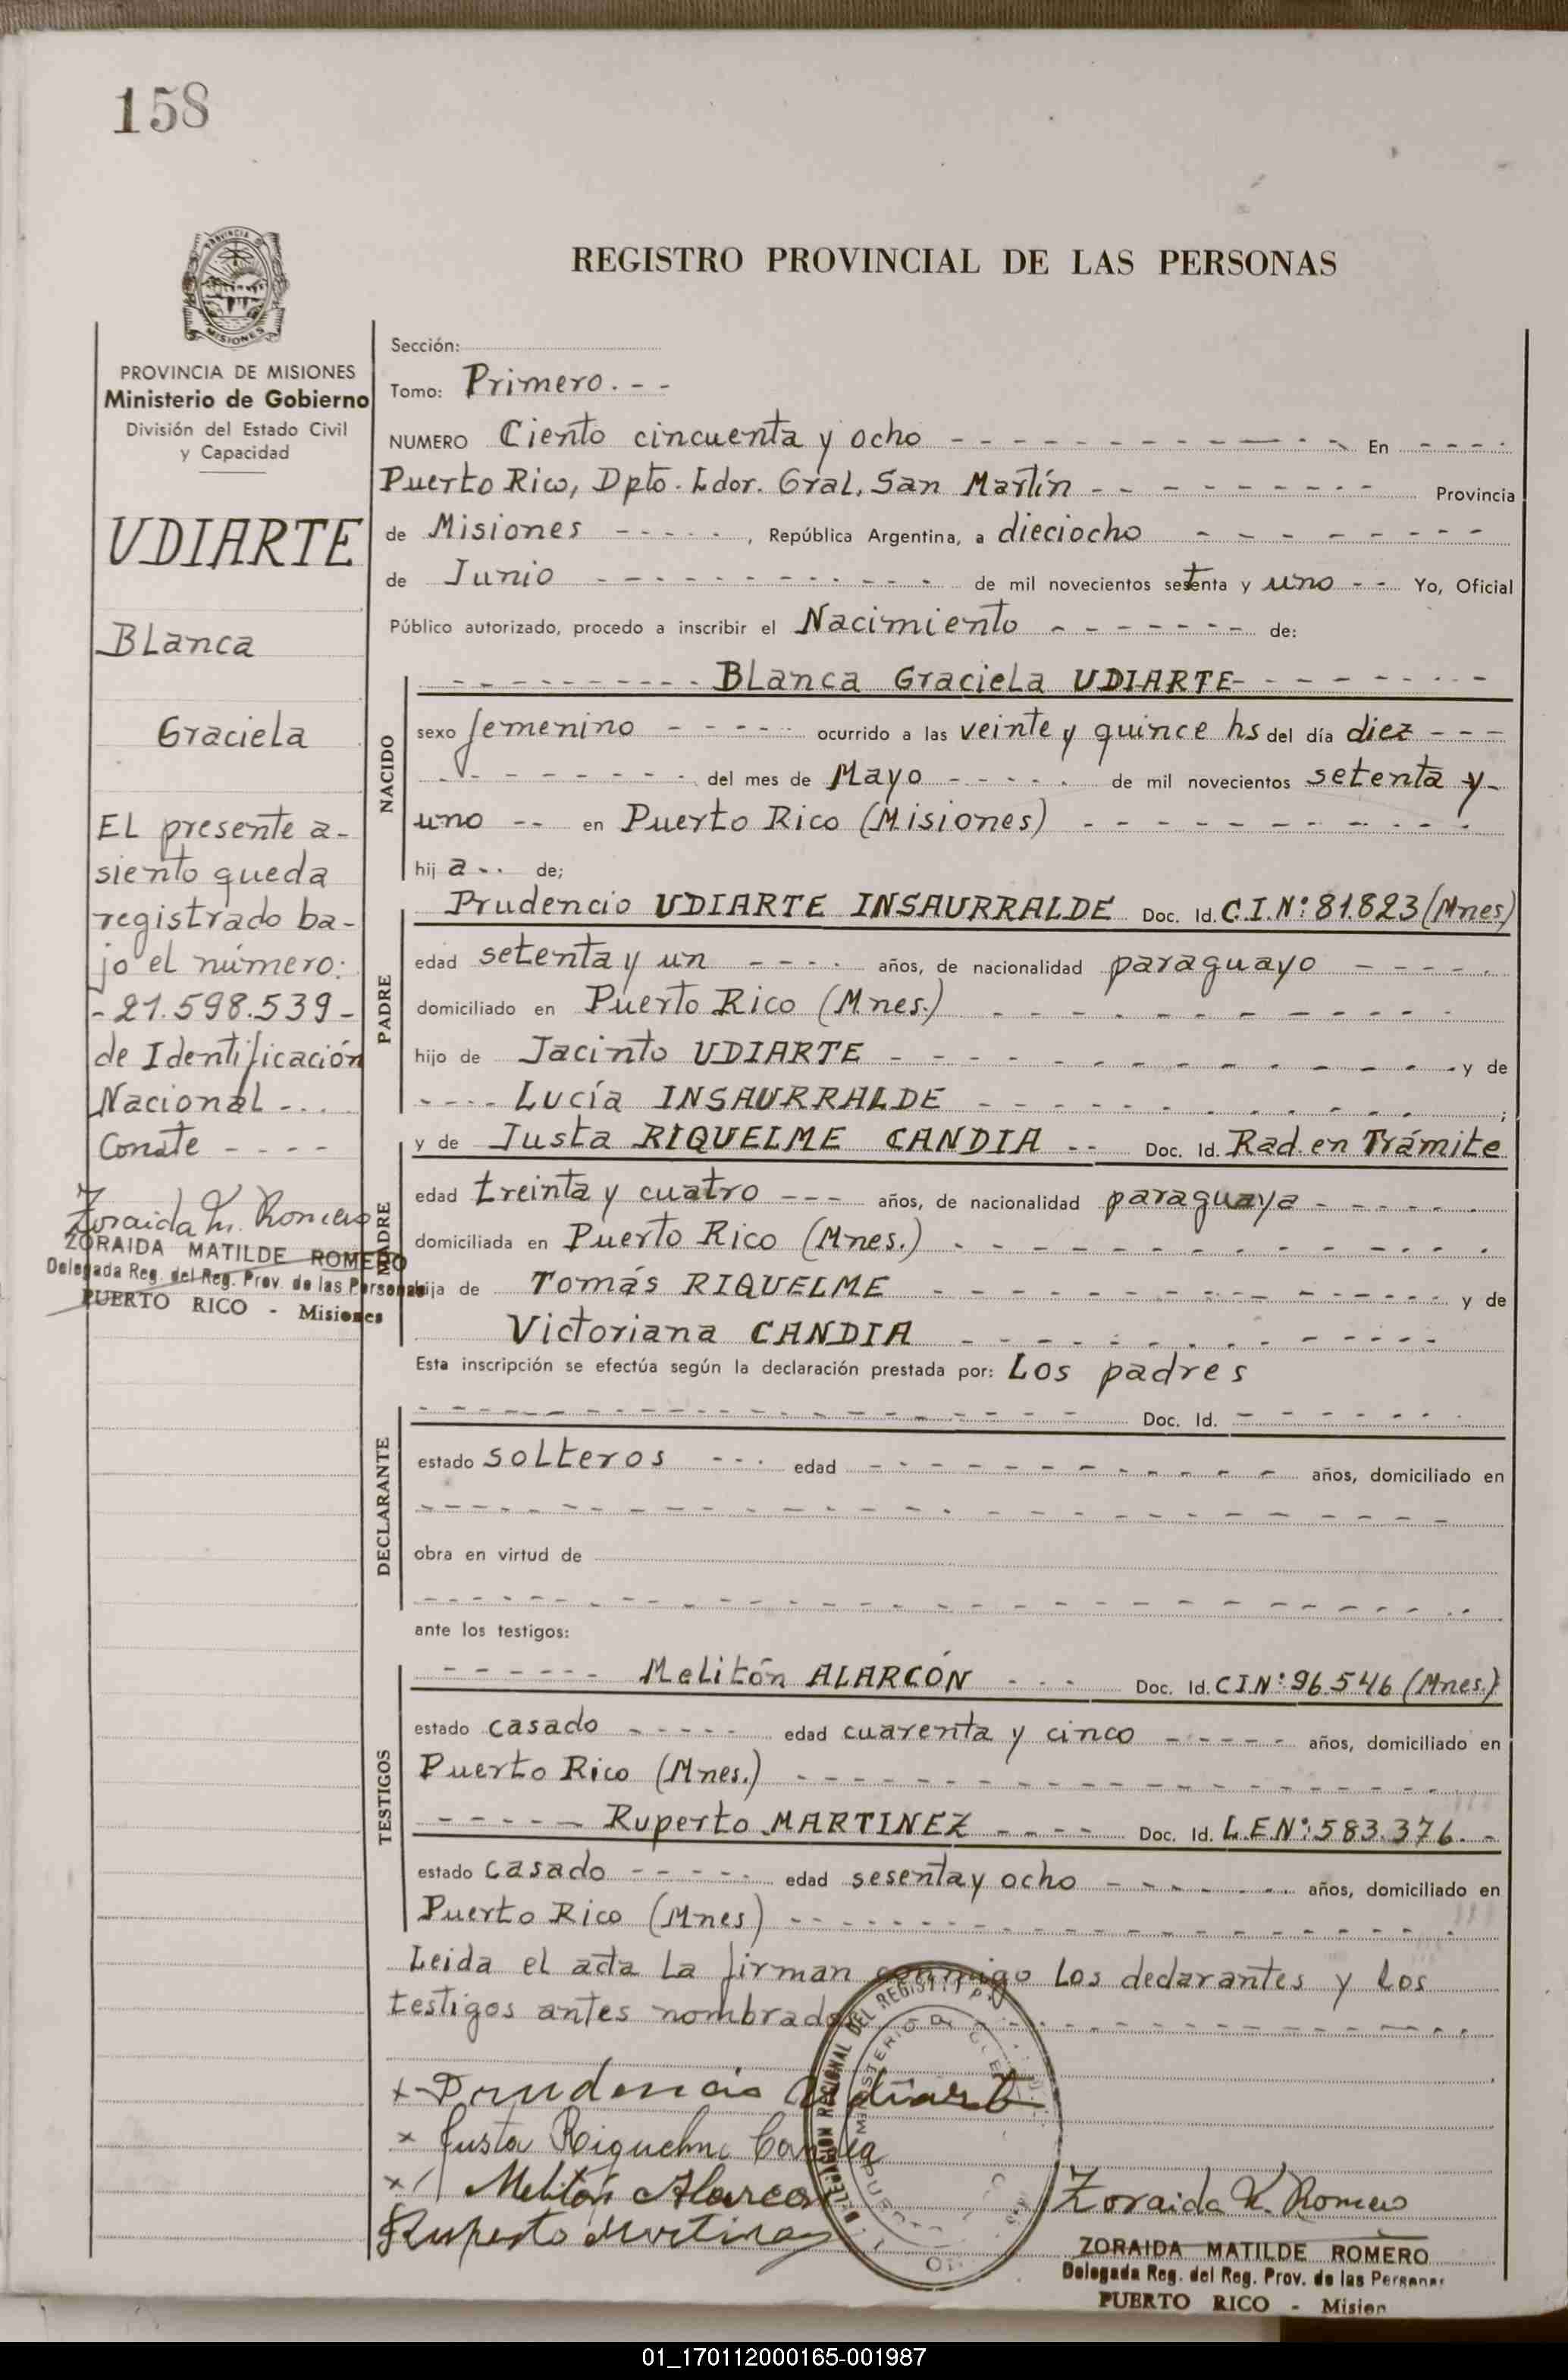 158
REGISTRO PROVINCIAL DE LAS PERSONAS
PROVINCIA
MISIONES
PROVINCIA DE MISIONES
Ministerio de Gobierno
División del Estado Civil
y Capacidad
UDIARTE
Blanca
Graciela
El presente a-
siento queda
registrado ba-
jo el número:
- 21.598.539 -
de Identificación
Nacional - . . .
Conste - - - -
Zoraida M. Romero
ZORAIDA MATILDE ROMERO
Delegada Reg. del Reg. Prov. de las Personas
PUERTO RICO - Misiones
Sección:
Tomo: Primero. - -
NUMERO Ciento cincuenta y ocho - - - En - - - -
Puerto Rico, Dpto. Ldor. Gral. San Martín - - - Provincia
de Misiones - - - - -, República Argentina, a dieciocho - - -
de Junio - - - de mil novecientos setenta y uno - - Yo, Oficial
Público autorizado, procedo a inscribir el Nacimiento - - - de:
NACIDO
- - - Blanca Graciela UDIARTE - - -
sexo femenino - - - ocurrido a las veinte y quince hs del día diez - - -
- - - del mes de Mayo - - - de mil novecientos setenta y -
uno - - en Puerto Rico (Misiones) - - -
hij a - . . de;
PADRE
Prudencio UDIARTE INSAURRALDE Doc. Id. C.I.Nº: 81.823 (Mnes)
edad setenta y un - - - - años, de nacionalidad paraguayo - - - -
domiciliado en Puerto Rico (Mnes.) - - -
hijo de Jacinto UDIARTE - - - y de
- - - - Lucía INSAURRALDE - - - ;
MADRE
y de Justa RIQUELME CANDIA - - Doc. Id. Rad. en Trámite
edad treinta y cuatro - - - años, de nacionalidad paraguaya - - -
domiciliada en Puerto Rico (Mnes.) - - -
hija de Tomás RIQUELME - - - y de
Victoriana CANDIA - - -
Esta inscripción se efectúa según la declaración prestada por: Los padres
DECLARANTE
- - - Doc. Id. - - -
estado solteros - - - edad - - - años, domiciliado en
- - -
obra en virtud de
- - -
ante los testigos:
TESTIGOS
- - - Melitón ALARCÓN - - - Doc. Id. C.I.Nº: 96.546 (Mnes.)
estado casado - - - edad cuarenta y cinco - - - años, domiciliado en
Puerto Rico (Mnes.) - - -
- - - Ruperto MARTINEZ - - - Doc. Id. L.E.Nº: 583.376. -
estado casado - - - edad sesenta y ocho - - - años, domiciliado en
Puerto Rico (Mnes) - - -
Leida el acta la firman conmigo los declarantes y los
testigos antes nombrados - - -
x Prudencio Udiarte
x Justa Riquelme Candia
x Melitón Alarcon
Ruperto Martinez
DELEGACION REGIONAL DEL REGIST
Zoraida M. Romero
ZORAIDA MATILDE ROMERO
Delegada Reg. del Reg. Prov. de las Personas
PUERTO RICO - Mision
01_170112000165-001987